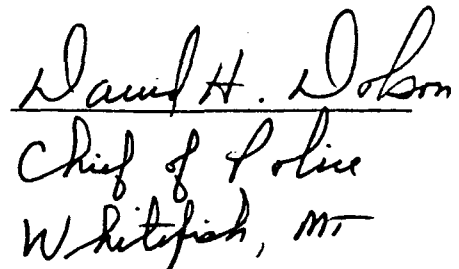 David H. Dolson
Chief of Police
Whitefish, MT